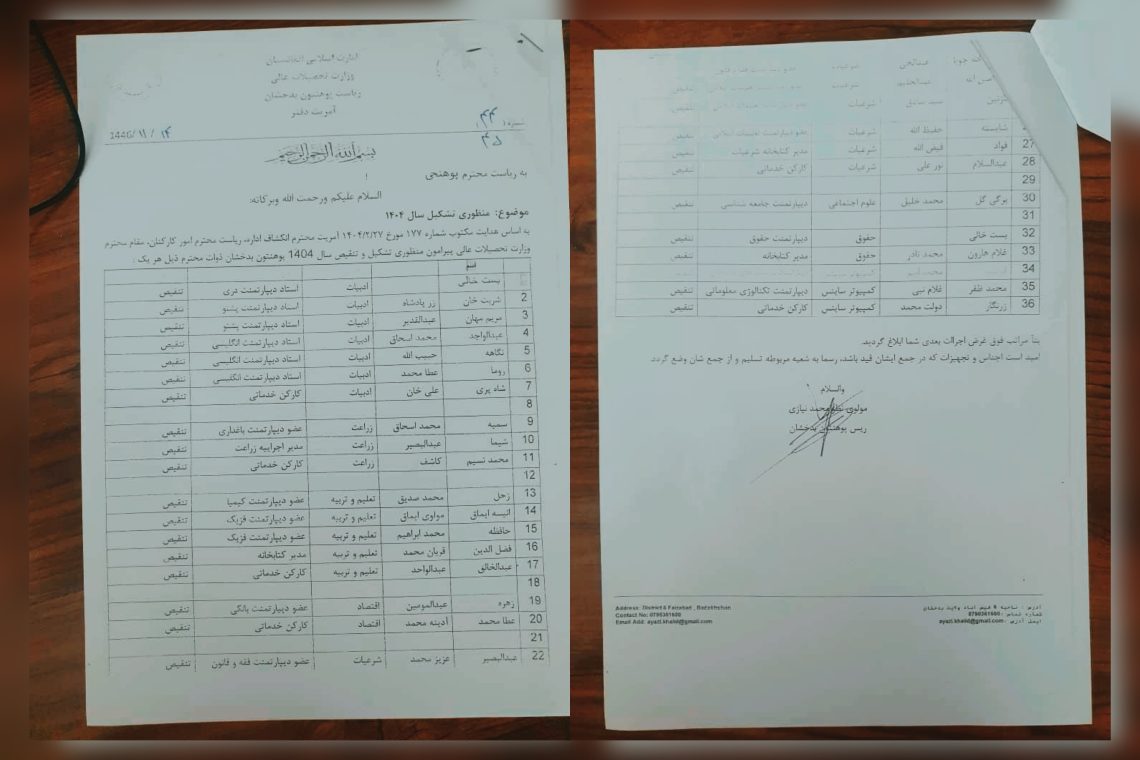 امارت اسلامی افغانستان
وزارت تحصیلات عالی
ریاست پوهنتون بدخشان
آمریت دفتر
1446/۱۱/۱۴
شماره ۴۴
۴۵
بسم الله الرحمن الرحیم
به ریاست محترم پوهنحی !
السلام علیکم ورحمت الله وبرکاته:
موضوع: منظوری تشکیل سال ۱۴۰۴
به اساس هدایت مکتوب شماره ۱۷۷ مورخ ۱۴۰۴/۲/۲۷ آمریت محترم انکشاف اداره، ریاست محترم امور کارکنان، مقام محترم
وزارت تحصیلات عالی پیرامون منظوری تشکیل و تنقیص سال 1404 پوهنتون بدخشان ذوات محترم ذیل هر یک :
بست خالی ادبیات استاد دیپارتمنت دری تنقیص
2 شربت خان زر پادشاه ادبیات استاد دیپارتمنت پشتو تنقیص
3 مریم مهان عبدالقدیر ادبیات استاد دیپارتمنت پشتو تنقیص
4 عبدالواجد محمد اسحاق ادبیات استاد دیپارتمنت انگلیسی تنقیص
5 نگاهه حبیب الله ادبیات استاد دیپارتمنت انگلسی تنقیص
6 روما عطا محمد ادبیات استاد دیپارتمنت انگلیسی تنقیص
7 شاه پری علی خان ادبیات کارکن خدماتی تنقیص
8
9 سمیه محمد اسحاق زراعت عضو دیپارتمنت باغداری تنقیص
10 شیما عبدالبصیر زراعت مدیر اجراییه زراعت تنقیص
11 محمد نسیم کاشف زراعت کارکن خدماتی تنقیص
12
13 زحل محمد صدیق تعلیم و تربیه عضو دیپارتمنت کیمیا تنقیص
14 انیسه ایماق مولوی ایماق تعلیم و تربیه عضو دیپارتمنت فزیک تنقیص
15 حافظه محمد ابراهیم تعلیم و تربیه عضو دیپارتمنت فزیک تنقیص
16 فضل الدین قربان محمد تعلیم و تربیه مدیر کتابخانه تنقیص
17 عبدالخالق عبدالواحد تعلیم و تربیه کارکن خدماتی تنقیص
18
19 زهره عبدالمومین اقتصاد عضو دیپارتمنت بانکی تنقیص
20 عطا محمد آدینه محمد اقتصاد کارکن خدماتی تنقیص
21
22 عبدالبصیر عزیز محمد شرعیات عضو دیپارتمنت فقه و قانون تنقیص
عبدالحی شرعیات تنقیص
شرعیات تنقیص
شرعیات تنقیص
شایسته حفیظ الله شرعیات عضو دیپارتمنت تنقیص
27 فواد فیض الله شرعیات مدیر کتابخانه شرعیات تنقیص
28 عبدالسلام نور علی شرعیات کارکن خدماتی تنقیص
29
30 برگی گل محمد خلیل علوم اجتماعی دیپارتمنت جامعه شناسی تنقیص
31
32 بست خالی حقوق دیپارتمنت حقوق تنقیص
33 غلام هارون محمد نادر حقوق مدیر کتابخانه تنقیص
34
35 محمد ظفر غلام نبی کمپیوتر ساینس دیپارتمنت تکنالوژی معلوماتی تنقیص
36 زرنگار دولت محمد کمپیوتر ساینس کارکن خدماتی تنقیص
بناً مراتب فوق غرض اجراات بعدی شما ابلاغ گردید.
امید است اجناس و تجهیزات که در جمع ایشان قید باشد، رسما به شعبه مربوطه تسلیم و از جمع شان وضع گردد.
والسلام
مولوی نظر محمد نیازی
ریس پوهنتون بدخشان
Address: District 6 Faizabad , Badakhshan
Contact No: 0790361600
Email Add: ayazi.khalid@gmail.com
آدرس : ناحیه 6 فیض آباد ولایت بدخشان
شماره تماس : 0790361600
ایمیل آدرس : ayazi.khalid@gmail.com